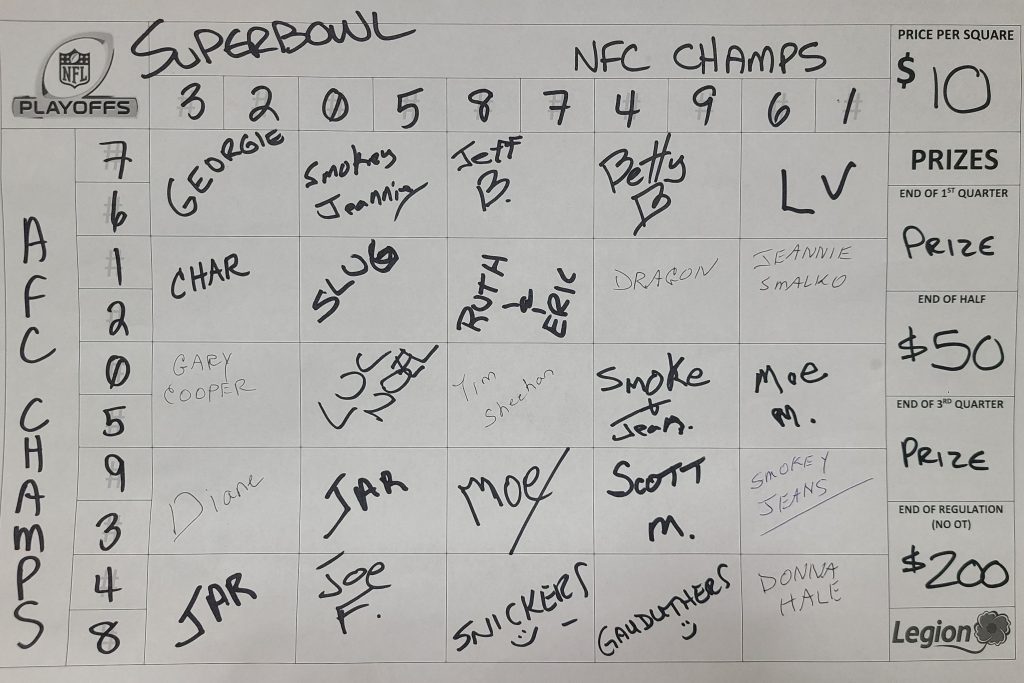 SUPERBOWL
NFL
PLAYOFFS
NFC CHAMPS
3 2 0 5 8 7 4 9 6 1
AFC CHAMPS
7
6
1
2
0
5
9
3
4
8
GEORGIE
Smokey
Jeannie
Jeff
B.
Betty
B
LV
CHAR
SLUG
RUTH
&
ERIC
DRAGON
JEANNIE
SMALKO
GARY
COOPER
LUC
NOEL
Tim
Sheehan
Smoke
+
Jean.
Moe
M.
Diane
JAR
Moe
SCOTT
M.
SMOKEY
JEANS
JAR
Joe
F.
SNICKERS
GAUDUTHERS
DONNA
HALE
PRICE PER SQUARE
$10
PRIZES
END OF 1ST QUARTER
PRIZE
END OF HALF
$50
END OF 3RD QUARTER
PRIZE
END OF REGULATION
(NO OT)
$200
Legion